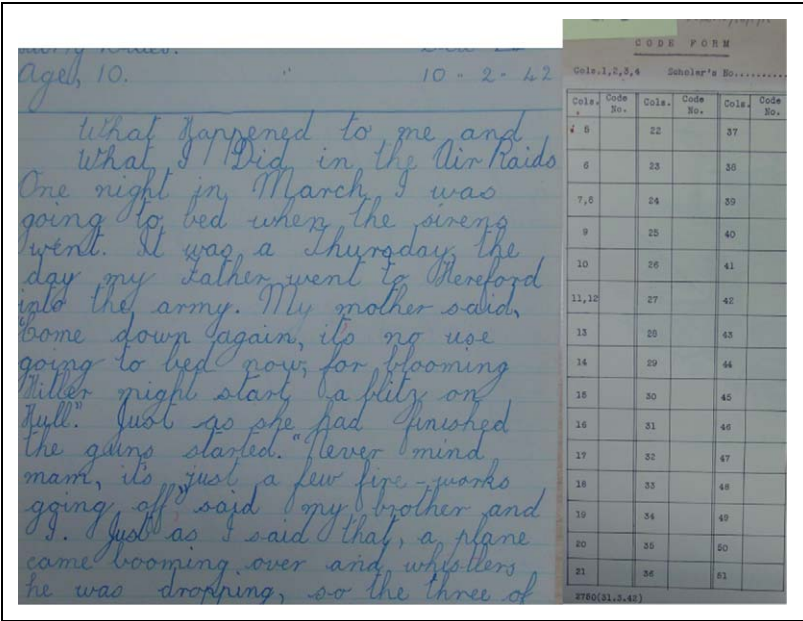 Age, 10. 10 - 2 - 42
What Happened to me and
What I Did in the Air Raids
One night in March I was
going to bed when the sirens
went. It was a Thursday, the
day my Father went to Hereford
into the army. My mother said,
"Come down again, it's no use
going to bed now, for blooming
Hitler might start a blitz on
Hull." Just as she had finished
the guns started. "Never mind
mam, it's just a few fire-works
going off," said my brother and
I. Just as I said that, a plane
came booming over and whistlers
he was dropping, so the three of
CODE FORM
Cols.1,2,3,4 Scholar's No...........
Cols. Code No. Cols. Code No. Cols. Code No.
5 22 37
6 23 38
7,8 24 39
9 25 40
10 26 41
11,12 27 42
13 28 43
14 29 44
15 30 45
16 31 46
17 32 47
18 33 48
19 34 49
20 35 50
21 36 51
2780(31.3.42)